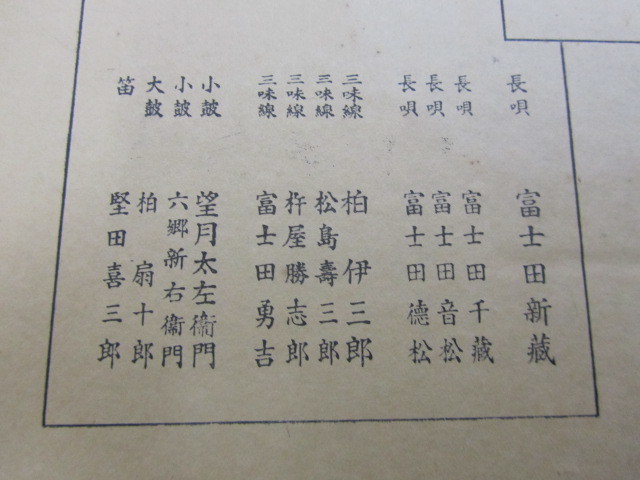 長唄 富士田新藏
長唄 富士田千藏
長唄 富士田音松
長唄 富士田德松
三味線 柏伊三郎
三味線 松島壽三郎
三味線 杵屋勝志郎
三味線 富士田勇吉
小鼓 望月太左衞門
小鼓 六郷新右衞門
大鼓 柏扇十郎
笛 堅田喜三郎